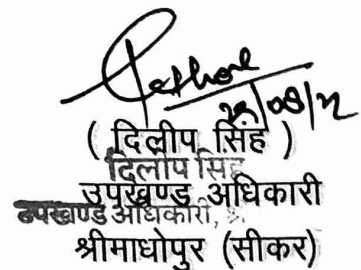 Rathore
( दिलीप सिंह )
दिलीप सिंह
उपखण्ड अधिकारी
उपखण्ड अधिकारी,
श्रीमाधोपुर (सीकर)